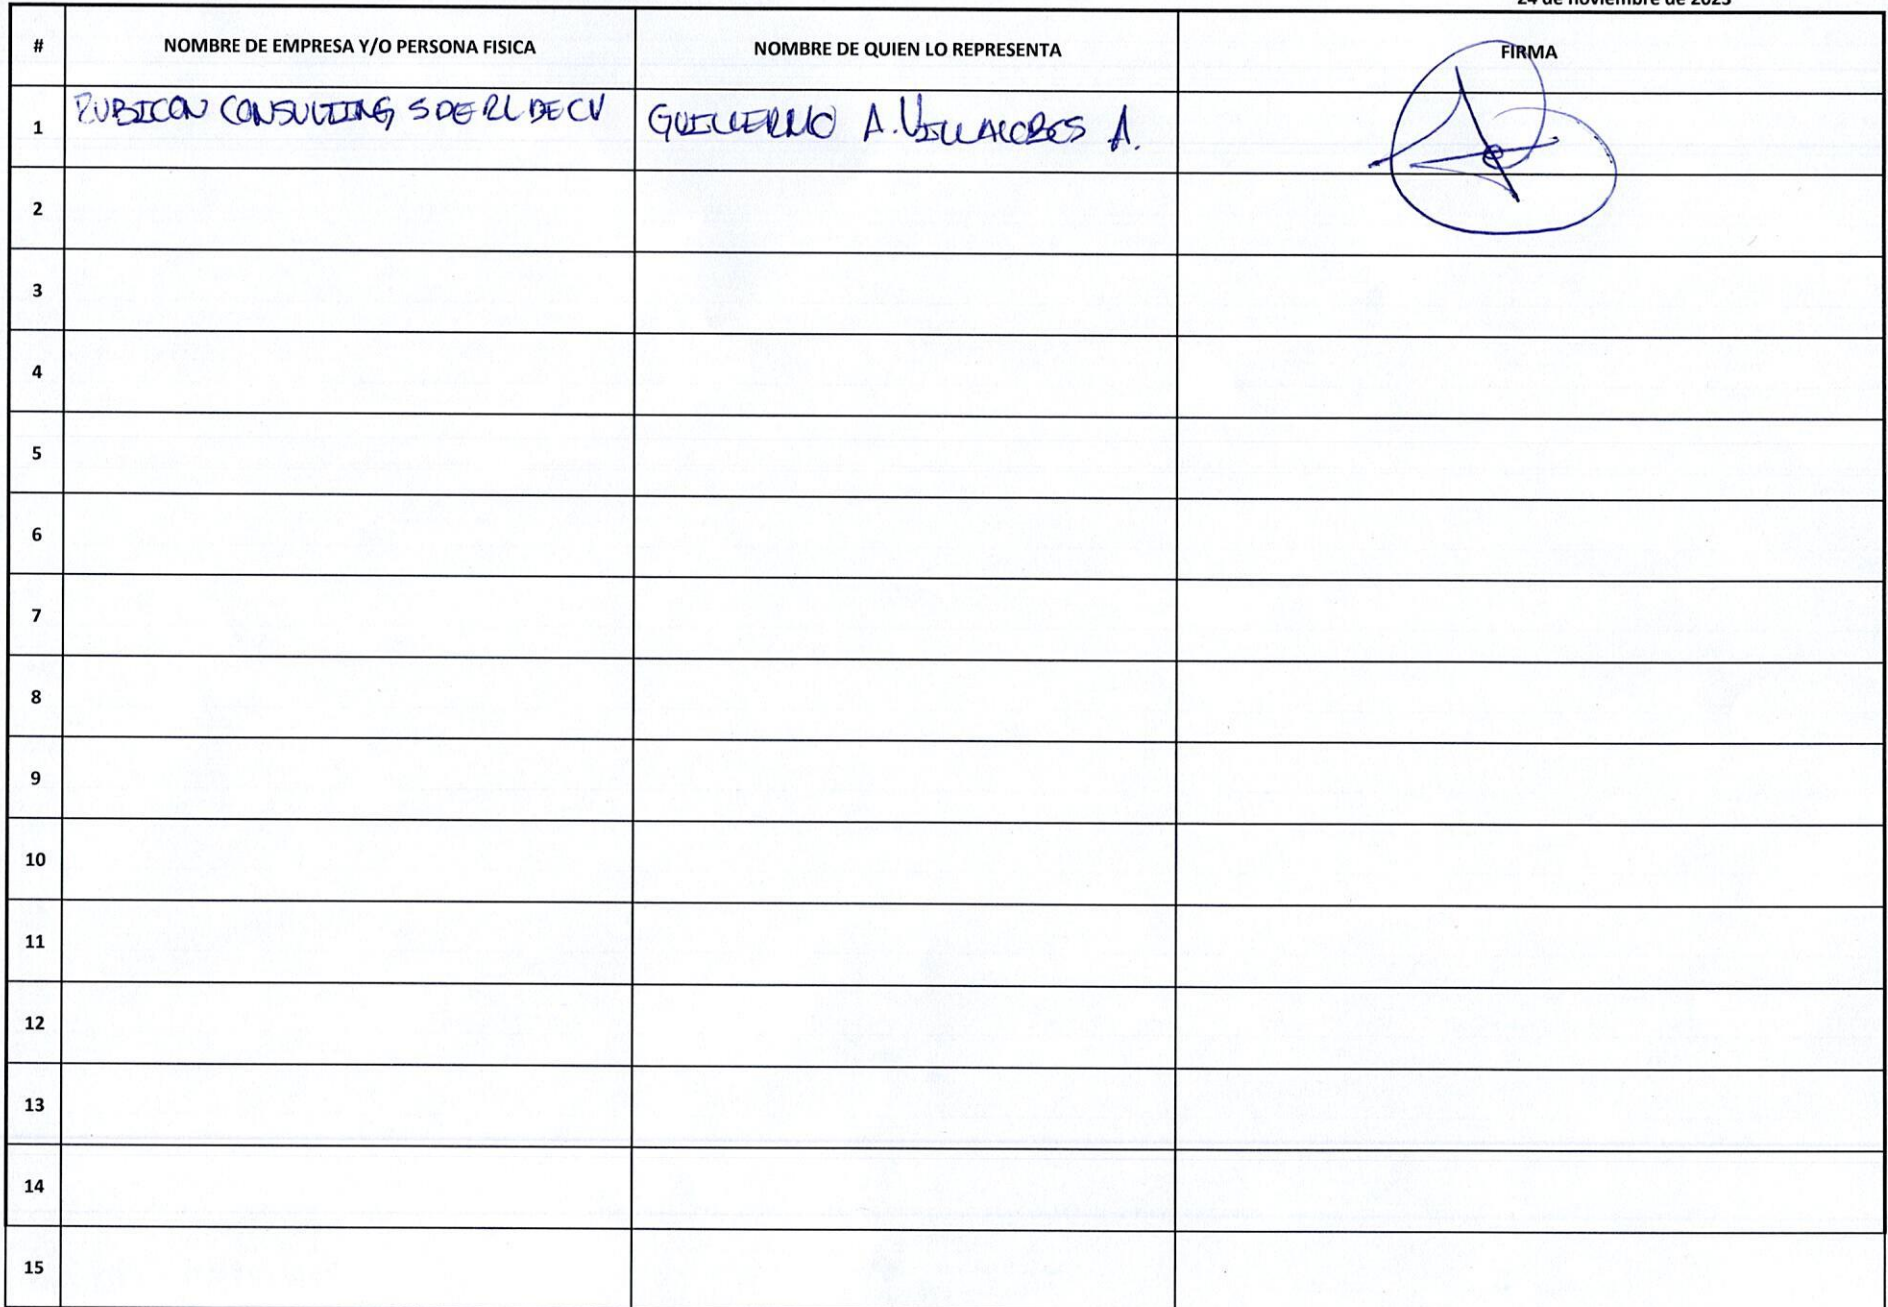 24 de noviembre de 2023
# NOMBRE DE EMPRESA Y/O PERSONA FISICA NOMBRE DE QUIEN LO REPRESENTA FIRMA
1 RUBICON CONSULTING S DE RL DE CV GUILLERMO A. VILLALOBOS A.
2
3
4
5
6
7
8
9
10
11
12
13
14
15